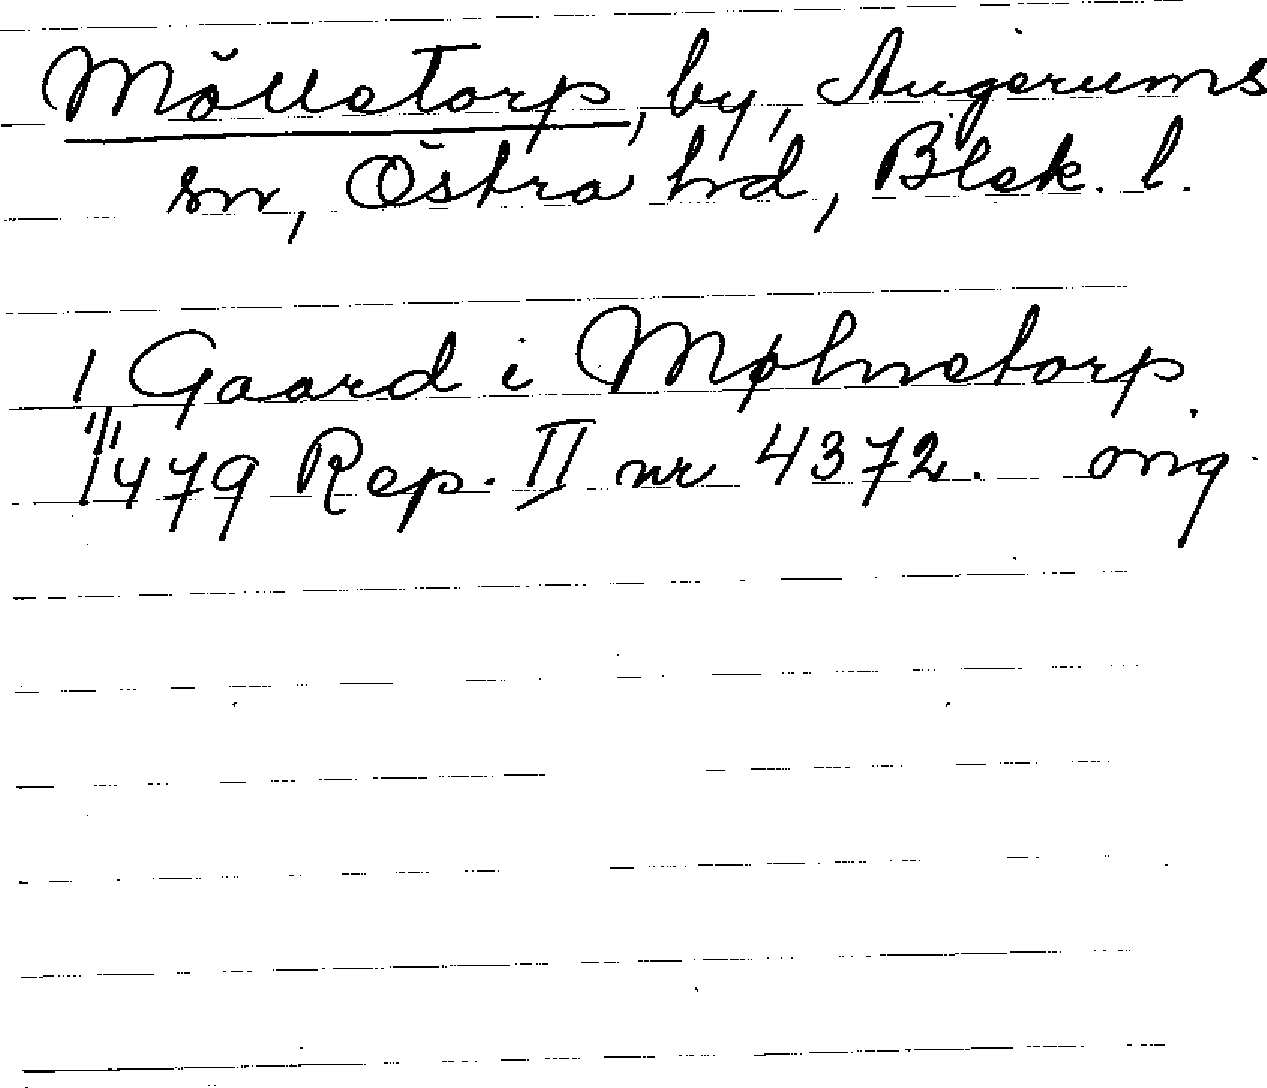 Mölletorp, by, Augerums
sn, Östra hd, Blek. l.
1 Gaard i Mølnetorp.
1/11 1479 Rep. II nr 4372. orig.